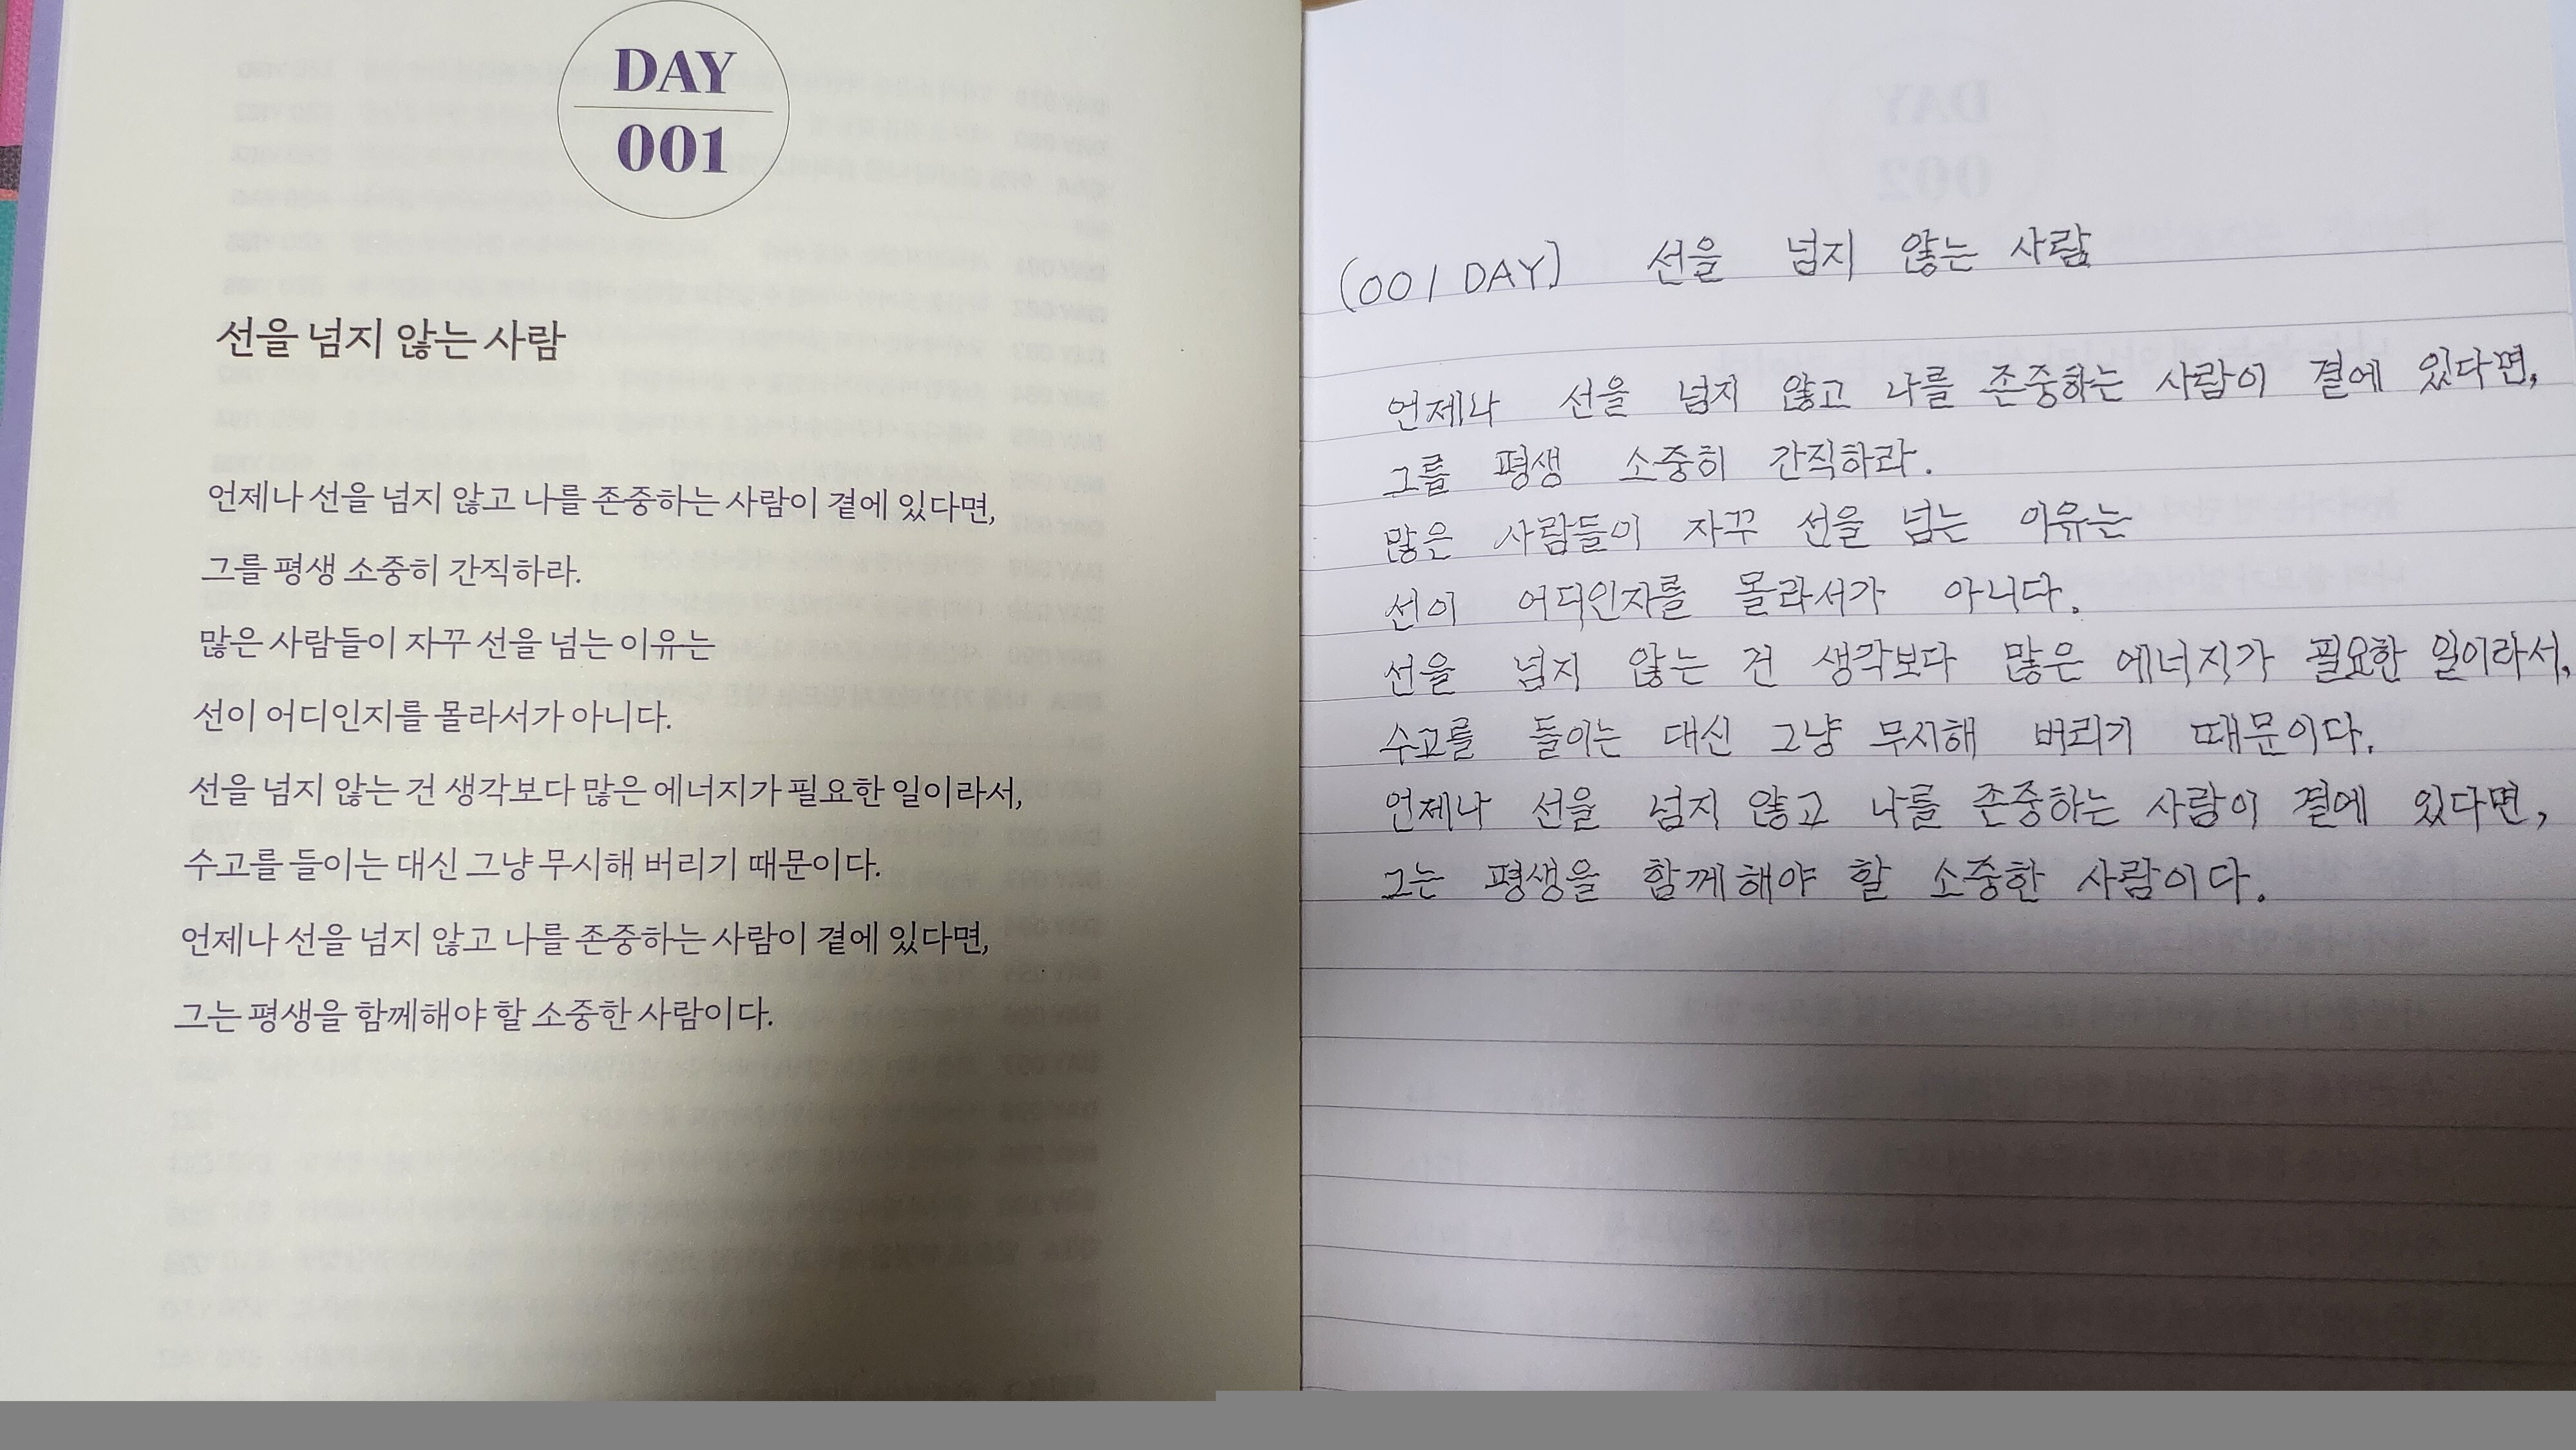 DAY
001
선을 넘지 않는 사람
언제나 선을 넘지 않고 나를 존중하는 사람이 곁에 있다면,
그를 평생 소중히 간직하라.
많은 사람들이 자꾸 선을 넘는 이유는
선이 어디인지를 몰라서가 아니다.
선을 넘지 않는 건 생각보다 많은 에너지가 필요한 일이라서,
수고를 들이는 대신 그냥 무시해 버리기 때문이다.
언제나 선을 넘지 않고 나를 존중하는 사람이 곁에 있다면,
그는 평생을 함께해야 할 소중한 사람이다.
(001 DAY) 선을 넘지 않는 사람
언제나 선을 넘지 않고 나를 존중하는 사람이 곁에 있다면,
그를 평생 소중히 간직하라.
많은 사람들이 자꾸 선을 넘는 이유는
선이 어디인지를 몰라서가 아니다.
선을 넘지 않는 건 생각보다 많은 에너지가 필요한 일이라서,
수고를 들이는 대신 그냥 무시해 버리기 때문이다.
언제나 선을 넘지 않고 나를 존중하는 사람이 곁에 있다면,
그는 평생을 함께해야 할 소중한 사람이다.